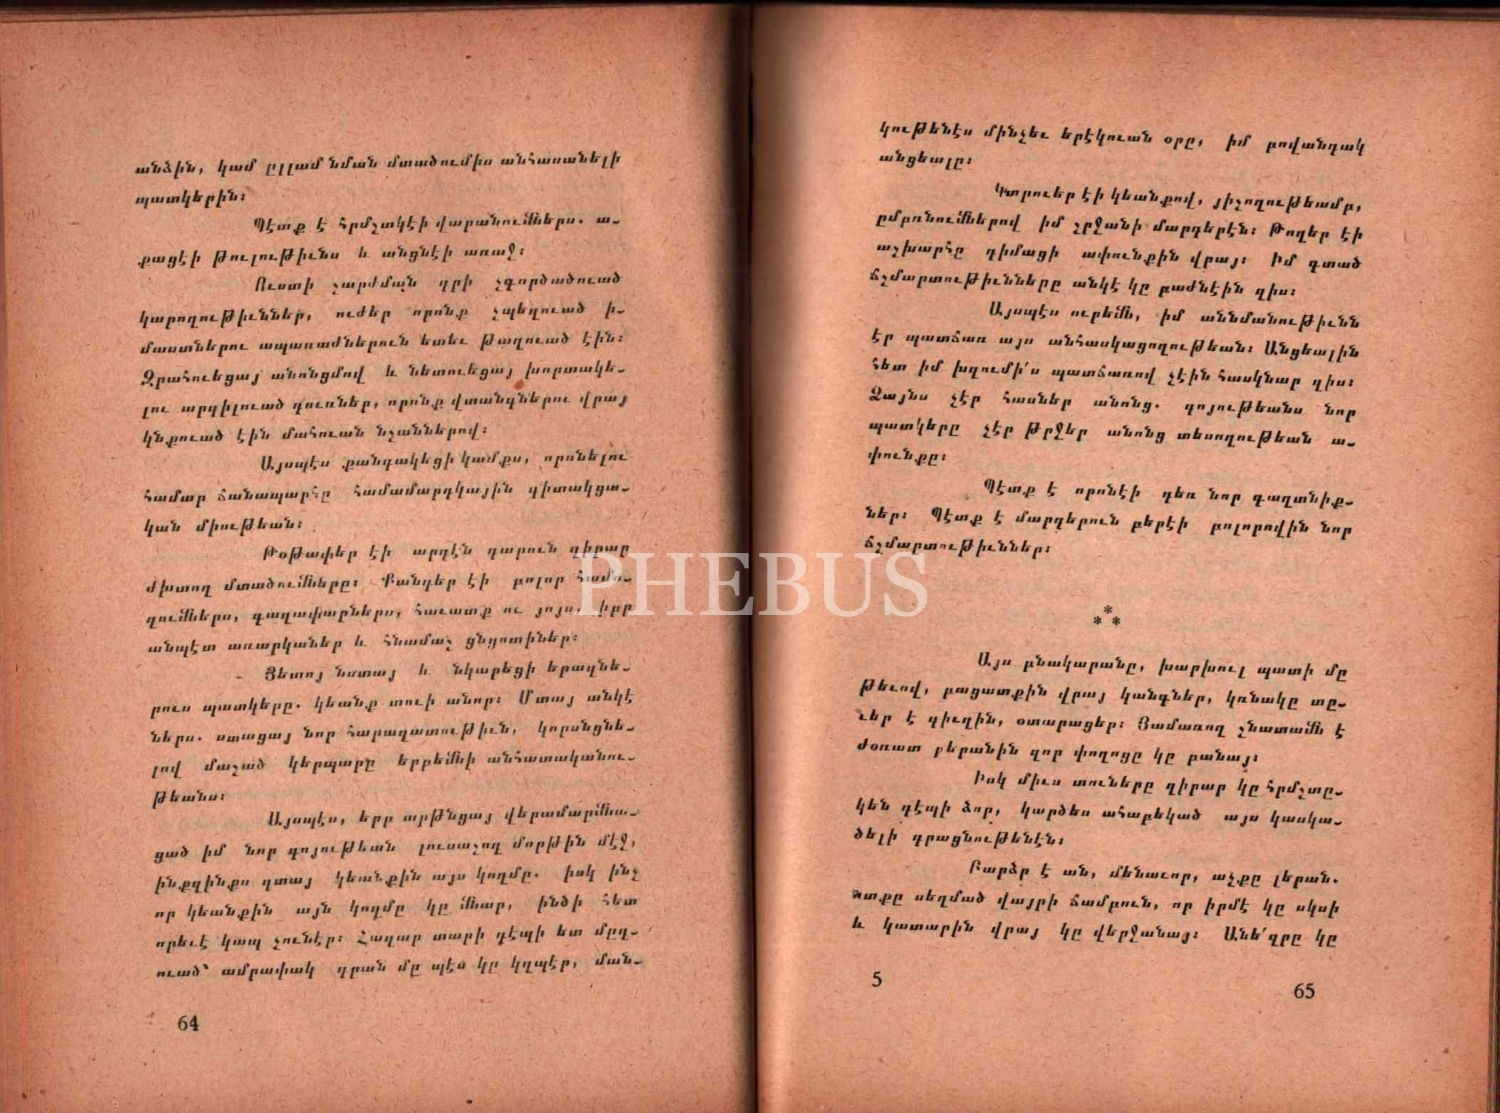 անձին, կամ ըլլամ նման մտածումիս անհասանելի
պատկերին։
Պէտք է հրմշտկէի վարանումներս. ա-
քացէի թուլութիւնս և անցնէի առաջ։
Ուստի շարժման դրի չգործածուած
կարողութիւններ, ուժեր որոնք չպեղուած ի-
մաստներու ապառաժներուն ետեւ թաղուած էին։
Զրահուեցայ անոնցմով և նետուեցայ խորտակե-
լու արգիլուած դուռներ, որոնք վտանգներու վրայ
կնքուած էին մահուան նշաններով։
Այսպէս քանդակեցի կամքս, որոնելու
համար ճանապարհը համամարդկային գիտակցա-
կան միութեան։
Թօթափեր էի արդէն դարուն զիրար
միտող մտածումները։ Քանդեր էի բոլոր համո-
զումներս, գաղափարներս, հաւատք ու յոյս, իբր
անպէտ առարկաներ և հնամաշ ցնցոտիներ։
Յետոյ նստայ և նկարեցի երազնե-
րուս պատկերը. կեանք տուի անոր։ Մտայ անկէ
ներս. ստացայ նոր հարազատութիւն, կորսնցնե-
լով մաշած կերպարը երբեմնի անհատականու-
թեանս։
Այսպէս, երբ արթնցայ վերամարմնա-
ցած իմ նոր գոյութեան լուսաշող մորթին մէջ,
ինքզինքս գտայ կեանքին այս կողմը. իսկ ինչ
որ կեանքին այն կողմը կը մնար, ինծի հետ
որեւէ կապ չունէր։ Հազար տարի դէպի ետ մըղ-
ուած՝ ամրափակ դրան մը պէս կը կղպէր, ման-
64
կութենէս մինչեւ երէկուան օրը, իմ բովանդակ
անցեալը։
Կտրուեր էի կեանքով, յիշողութեամբ,
ըմբռնումներով իմ շրջանի մարդերէն։ Թողեր էի
աշխարհը դիմացի ափունքին վրայ։ Իմ գտած
ճշմարտութիւնները անկէ կը բաժնէին զիս։
Այսպէս ուրեմն, իմ աննմանութիւնն
էր պատճառ այս անհասկացողութեան։ Անցեալին
հետ իմ խզումի՛ս պատճառով չէին հասկնար զիս։
Ձայնս չէր հասներ անոնց. գոյութեանս նոր
պատկերը չէր թրջեր անոնց տեսողութեան ա-
փունքը։
Պէտք է որոնէի դեռ նոր գաղտնիք-
ներ։ Պէտք է մարդերուն բերէի բոլորովին նոր
ճշմարտութիւններ։
* * *
Այս բնակարանը, խարխուլ պատի մը
թեւով, բացատքին վրայ կանգներ, կռնակը տը-
ւեր է գիւղին, օտարացեր։ Յամառող չնստամն է
Ժօռատ բերանին զոր փողոցը կը բանայ։
Իսկ միւս տուները զիրար կը հրմշտը-
կեն դէպի ձոր, կարծես ահաբեկած այս կասկա-
ծելի դրացնութենէն։
Բարձր է ան, մենաւոր, աչքը լերան.
ոտքը սեղմած վայրի ճամբուն, որ իրմէ կը սկսի
և կատարին վրայ կը վերջանայ։ Անե՛զրը կը
5
65
PHEBUS